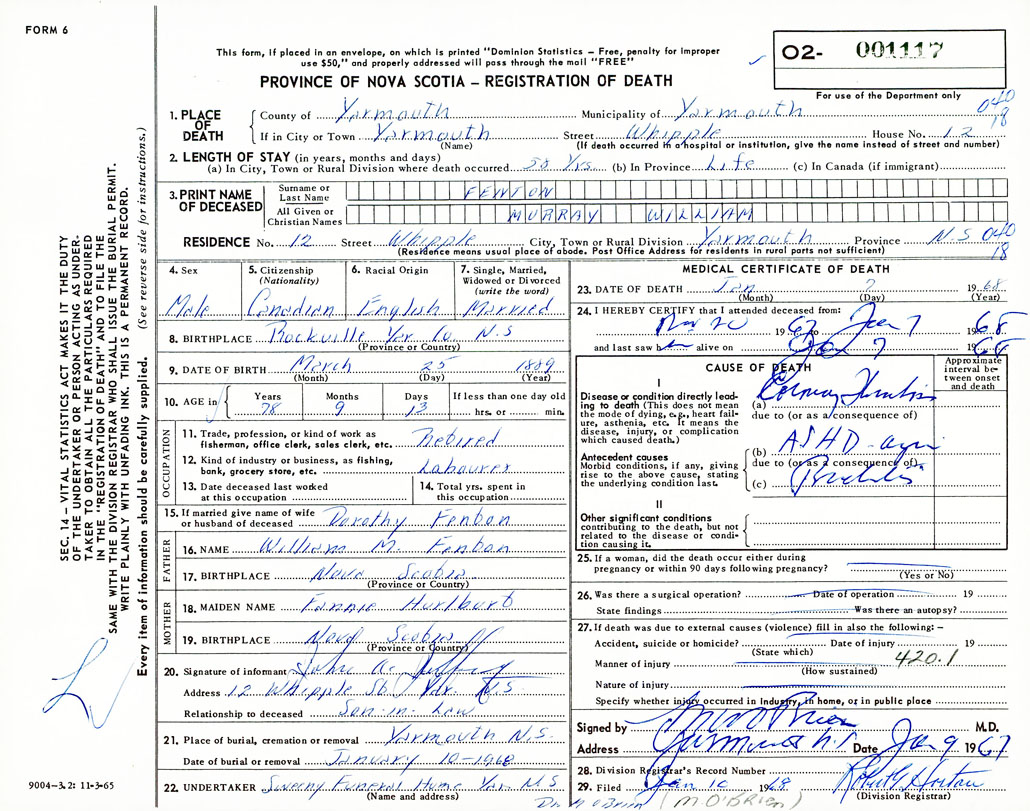 FORM 6
This form, if placed in an envelope, on which is printed "Dominion Statistics – Free, penalty for improper
use $50," and properly addressed will pass through the mail "FREE"
PROVINCE OF NOVA SCOTIA – REGISTRATION OF DEATH
O2- 001117
For use of the Department only
040
18
1. PLACE OF DEATH
County of Yarmouth Municipality of Yarmouth
If in City or Town Yarmouth Street Whipple House No. 12
(Name) (If death occurred in a hospital or institution, give the name instead of street and number)
2. LENGTH OF STAY (in years, months and days)
(a) In City, Town or Rural Division where death occurred 50 Yrs. (b) In Province Life (c) In Canada (if immigrant)
3. PRINT NAME OF DECEASED
Surname or Last Name FENTON
All Given or Christian Names MURRAY WILLIAM
RESIDENCE No. 12 Street Whipple City, Town or Rural Division Yarmouth Province N S 040
(Residence means usual place of abode. Post Office Address for residents in rural parts not sufficient) 18
4. Sex Male
5. Citizenship (Nationality) Canadian
6. Racial Origin English
7. Single, Married, Widowed or Divorced (write the word) Married
8. BIRTHPLACE Rockville Yar Co. N.S
(Province or Country)
9. DATE OF BIRTH March 25 1889
(Month) (Day) (Year)
10. AGE in Years Months Days If less than one day old
78 9 13 hrs. or min.
OCCUPATION
11. Trade, profession, or kind of work as
fisherman, office clerk, sales clerk, etc. Retired
12. Kind of industry or business, as fishing,
bank, grocery store, etc. Labourer
13. Date deceased last worked
at this occupation
14. Total yrs. spent in
this occupation
15. If married give name of wife
or husband of deceased Dorothy Fenton
FATHER
16. NAME William M. Fenton
17. BIRTHPLACE Nova Scotia
(Province or Country)
MOTHER
18. MAIDEN NAME Fannie Hurlburt
19. BIRTHPLACE Nova Scotia
(Province or Country)
20. Signature of informant John A.
Address 12 Whipple St. Yar. N.S.
Relationship to deceased Son-in-Law
21. Place of burial, cremation or removal Yarmouth N.S.
Date of burial or removal January 10-1968
22. UNDERTAKER Sweeny Funeral Home Yar N S
(Name and address)
MEDICAL CERTIFICATE OF DEATH
23. DATE OF DEATH Jan 7 1968
(Month) (Day) (Year)
24. I HEREBY CERTIFY that I attended deceased from:
Nov 20 1967 Jan 7 1968
and last saw him alive on Jan 7 1968
CAUSE OF DEATH
Approximate interval between onset and death
I
Disease or condition directly leading to death (This does not mean the mode of dying, e.g., heart failure, asthenia, etc. It means the disease, injury, or complication which caused death.)
(a) Coronary Thrombosis
due to (or as a consequence of)
Antecedent causes
Morbid conditions, if any, giving rise to the above cause, stating the underlying condition last.
(b) ASHD -
due to (or as a consequence of)
(c)
II
Other significant conditions
contributing to the death, but not related to the disease or condition causing it.
25. If a woman, did the death occur either during
pregnancy or within 90 days following pregnancy?
(Yes or No)
26. Was there a surgical operation? Date of operation 19
State findings Was there an autopsy?
27. If death was due to external causes (violence) fill in also the following: –
Accident, suicide or homicide? Date of injury 19
(State which)
Manner of injury 420.1
(How sustained)
Nature of injury
Specify whether injury occurred in Industry, in home, or in public place
Signed by M O'Brien M.D.
Address Yarmouth N.S. Date Jan 9 1967
28. Division Registrar's Record Number
29. Filed Jan 10 1968 Robert G Horton
(Division Registrar)
Dr. M O'Brien (M. O'BRIEN)
SEC. 14 – VITAL STATISTICS ACT MAKES IT THE DUTY
OF THE UNDERTAKER OR PERSON ACTING AS UNDER-
TAKER TO OBTAIN ALL THE PARTICULARS REQUIRED
IN THE "REGISTRATION OF DEATH" AND TO FILE THE
SAME WITH THE DIVISION REGISTRAR WHO SHALL ISSUE THE BURIAL PERMIT.
WRITE PLAINLY WITH UNFADING INK. THIS IS A PERMANENT RECORD.
Every item of information should be carefully supplied. (See reverse side for instructions.)
9004–3.2: 11-3-65